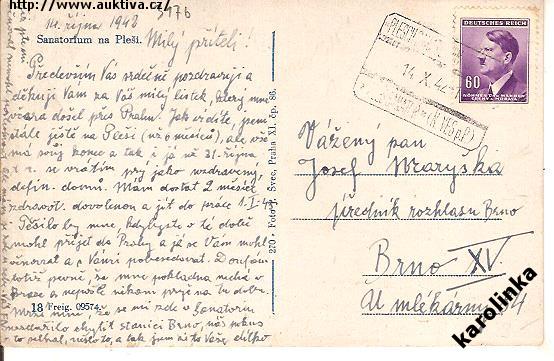 http://www.auktiva.cz/
14. října 1942
3476
Sanatorium na Pleši.
Milý příteli!
Především Vás srdečně pozdravuji a
děkuji Vám za Váš milý lístek, který mne
včera došel přes Prahu. Jak vidíte, jsem
stále ještě na Pleši (už 6 měsíců), ale vše
má svůj konec a tak i já už 31. října
t. r. se vrátím prý jako uzdravený,
defin. domů. Mám dostat 2 měsíce
zdravot. dovolenou a jít do práce 1. I. 43.
Těšilo by mne, kdybyste v té době
mohl přijet do Prahy a já se Vám mohl
věnovat a s Vámi pohovořit. Doufám
totiž pevně, že mne pokladna nechá v
Praze a nepošle někam pryč na to dobu.
Mrzí mne, že se mi zde v Sanatoriu
nepodařilo chytit stanici Brno,
18 Freig. 09574.
270 - Foto J. Švec, Praha XI, čp. 86.
14. X. 42
DEUTSCHES REICH
60
BÖHMEN UND MÄHREN
ČECHY A MORAVA
Vážený pan
Josef
úředník rozhlasu Brno
Brno XV.
U mlékárny 4
karolinka